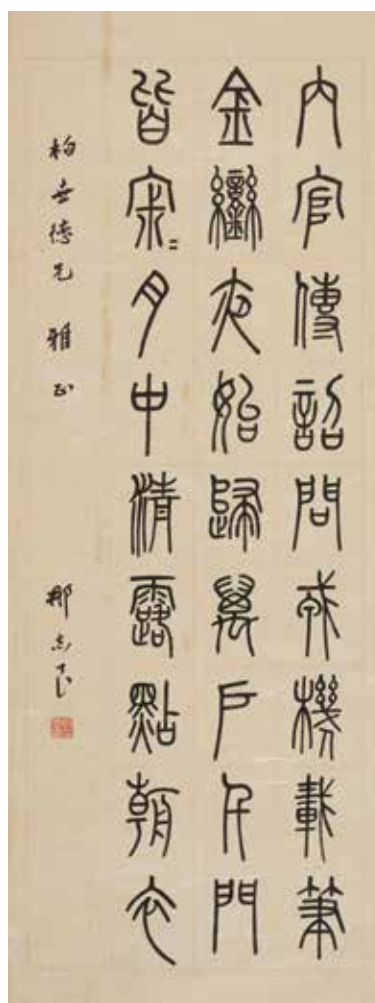 內官傳詔問戎機載筆
金鑾夜始歸萬戶千門
皆宋=月中清露點朝衣
柏 德兄 雅正 那志良